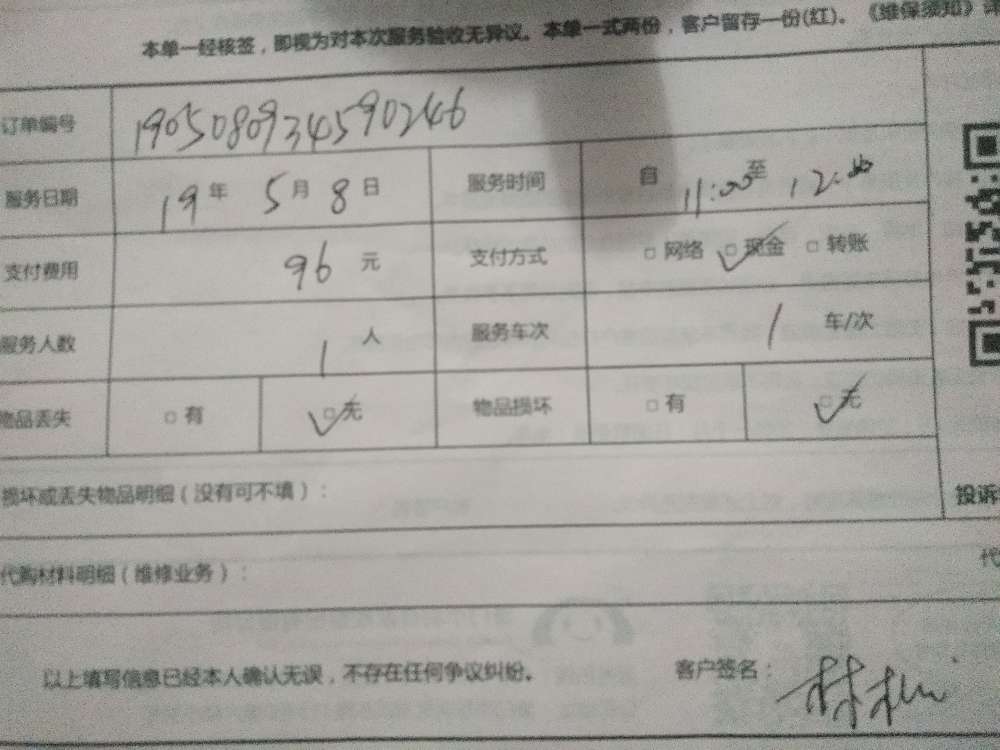 本单一经核签，即视为对本次服务验收无异议。本单一式两份，客户留存一份(红)。《维保须知》详
订单编号 1905080934590246
服务日期 19年 5月 8日 服务时间 自 11:00至 12:00
支付费用 96 元 支付方式 □网络 ☑现金 □转账
服务人数 1 人 服务车次 1 车/次
物品丢失 □有 ☑无 物品损坏 □有 ☑无
损坏或丢失物品明细（没有可不填）：
投诉
代购材料明细（维修业务）：
代
以上填写信息已经本人确认无误，不存在任何争议纠纷。 客户签名：